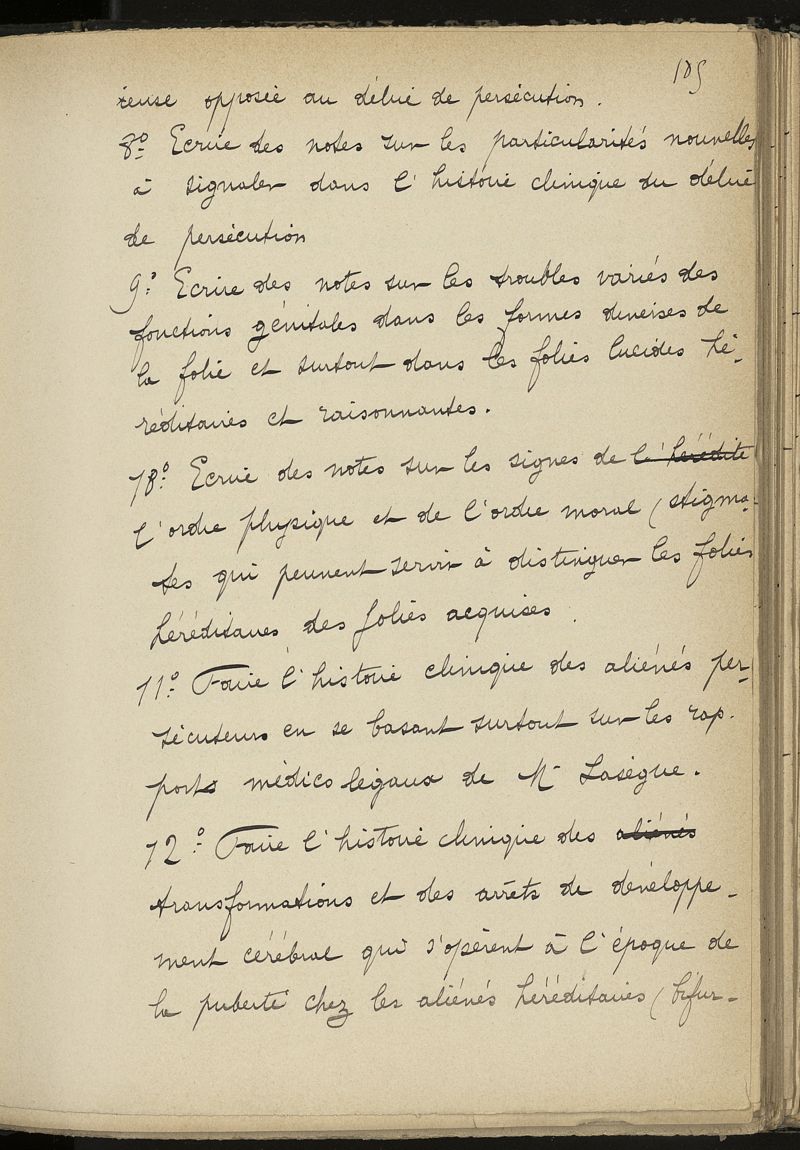 185
rieuse opposée au délire de persécution.
8º Ecrire des notes sur les particularités nouvelles
à signaler dans l'histoire clinique du délire
de persécution
9º Ecrire des notes sur les troubles variés des
fonctions génitales dans les formes diverses de
la folie et surtout dans les folies lucides hé-
réditaires et raisonnantes.
10º Ecrire des notes sur les signes de l'hérédité
l'ordre physique et de l'ordre moral (stigma-
tes qui peuvent servir à distinguer les folies
héréditaires des folies acquises.
11º Faire l'histoire clinique des aliénés per-
sécuteurs en se basant surtout sur les rap-
ports médico légaux de Mr Lasègue.
12º Faire l'histoire clinique des aliénés
transformations et des arrêts de développe-
ment cérébral qui s'opèrent à l'époque de
la puberté chez les aliénés héréditaires (bifur-